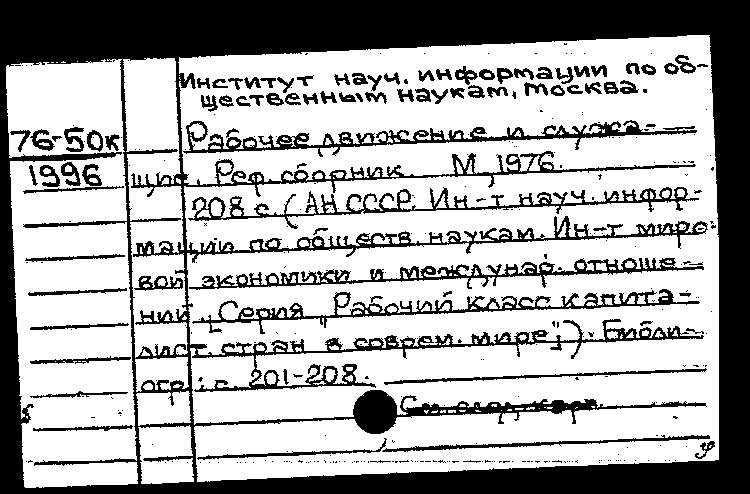 Институт науч. информации по об-
щественным наукам, Москва.
76-50к
1996
Рабочее движение и служа-
щие. Реф. сборник. М., 1976.
208 с. (АН СССР. Ин-т науч. инфор-
мации по обществ. наукам. Ин-т миро-
вой экономики и междунар. отноше-
ний. [Серия "Рабочий класс капита-
лист. стран в соврем. мире"]). Библи-
огр.: с. 201-208.
См. след. карт.